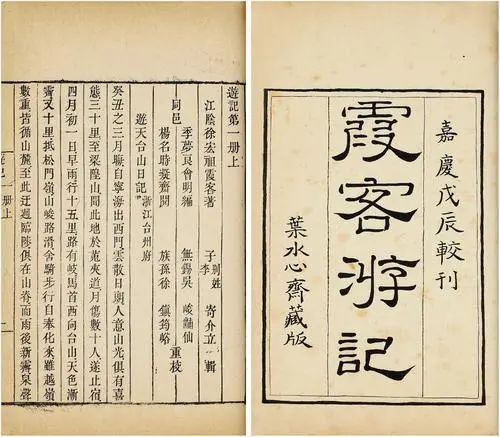 嘉慶戊辰較刊
霞客游記
葉水心齋藏版
遊記第一册上
江陰徐宏祖霞客著 子李別姓寄介立輯
季夢良會明編 無錫吳峻黼仙
同邑 重校
楊名時凝齋閱 族孫徐鎮筠峪
遊天台山日記 浙江台州府
癸丑之三月晦自寧海出西門雲散日朗人意山光俱有喜
態三十里至梁隍山聞此地於菟夾道月傷數十人遂止宿
四月初一日早雨行十五里路有岐馬首西向台山天色漸
霽又十里抵松門嶺山峻路滑舍騎步行自奉化來雖越嶺
數重皆循山麓至此迂迴臨陟俱在山脊而雨後新霽泉聲